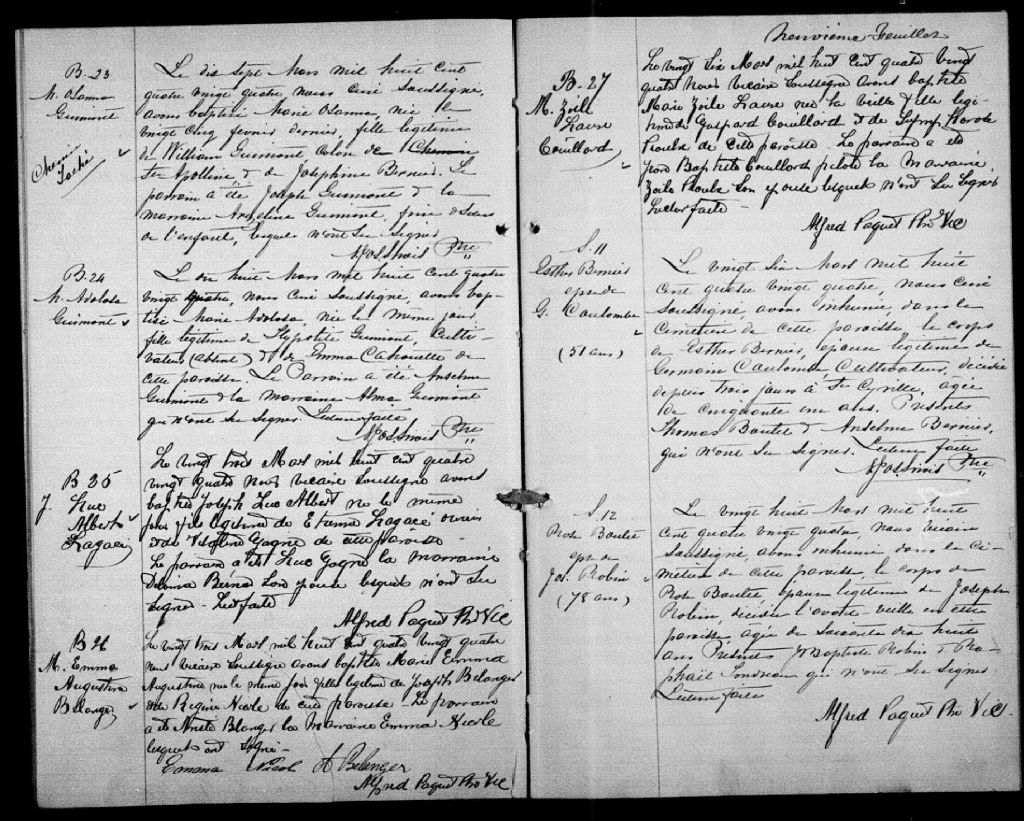 B-23
M. Osanna
Guimont
Chemin
Taché
Le dix sept Mars mil huit cent
quatre vingt quatre, nous curé soussigné,
avons baptisé Marie Osanna, née le
vingt cinq fevrier dernier, fille legitime
de William Guimont colon de Chemin
Ste Apolline & de Josephine Bernier. Le
parrain a été Joseph Guimont & la
marraine Angeline Guimont, frère & sœur
de l'enfant, lesquels n'ont su signer.
Ptre
B-24
M. Adolosa
Guimont
Le dix huit Mars mil huit cent quatre
vingt quatre, nous curé soussigné, avons bap-
tisé Marie Adolosa, née le meme jour,
fille légitime de Hypolite Guimont, Culti-
vateur (absent) & de Emma Cahouette de
cette paroisse. Le Parrain a été Anselme
Guimont & la marraine Alma Guimont
qui n'ont su signer. Lecture faite
Ptre
B 25
J. Luc
Albert
Lagacé
Le vingt trois Mars mil huit cent quatre
vingt quatre nous vicaire soussigné avons
baptisé Joseph Luc Albert né le même
jour fils légitime de Etienne Lagacé
et de Gagné de cette paroisse
Le parrain a été Luc Gagné la marraine
Bernier son épouse lesquels n'ont su
signer - Lect faite
Alfred Paquet Ptre Vic
B 26
M. Emma
Augustina
Belanger
Le vingt trois Mars mil huit cent quatre vingt quatre
nous vicaire soussigné avons baptisé Marie Emma
Augustine née le même jour fille legitime de Belanger
et de Regina Nicole de cette paroisse - Le parrain
a été Belanger la Marraine Emma Nicole
lesquels ont signé -
Emma Nicole A Belanger
Alfred Paquet Ptre Vic
Neuvième Feuillet
B-27
M. Zoile
Laure
Couillard
Le vingt six Mars mil huit cent quatre vingt
quatre nous vicaire soussigné avons baptisé
Marie Zoile Laure née la veille fille légi-
time de Gaspard Couillard & de
de cette paroisse. Le parrain a été
Jean Baptiste Couillard pilote la Marraine
Zoile son épouse lesquels n'ont su signer
Lecture faite -
Alfred Paquet Ptre Vic
S. 11
Esther Bernier
epse de
G. Caulombe
(51 ans)
Le vingt six Mars mil huit
cent quatre vingt quatre, nous curé
soussigné, avons inhumé, dans le
Cimetiere de cette paroisse, le corps
de Esther Bernier, epouse legitime de
Germain Caulombe Cultivateur, décédée
depuis trois jours à St Cyrille, agée
de cinquante un ans. Présents
Thomas Boutet & Anselme Bernier,
qui n'ont su signer. Lecture faite
Ptre
S. 12
Rose Boutet
epse de
Jos. Robin
(78 ans)
Le vingt huit Mars mil huit
cent quatre vingt quatre, nous vicaire
soussigné avons inhumé dans le Ci-
metière de cette paroisse, le corps de
Rose Boutet, epouse legitime de Joseph
Robin, décédée l'avant veille en cette
paroisse agée de soixante dix huit
ans Présents J Baptiste Robin & Ra-
phaël qui n'ont su signer
Lecture faite
Alfred Paquet Ptre Vic